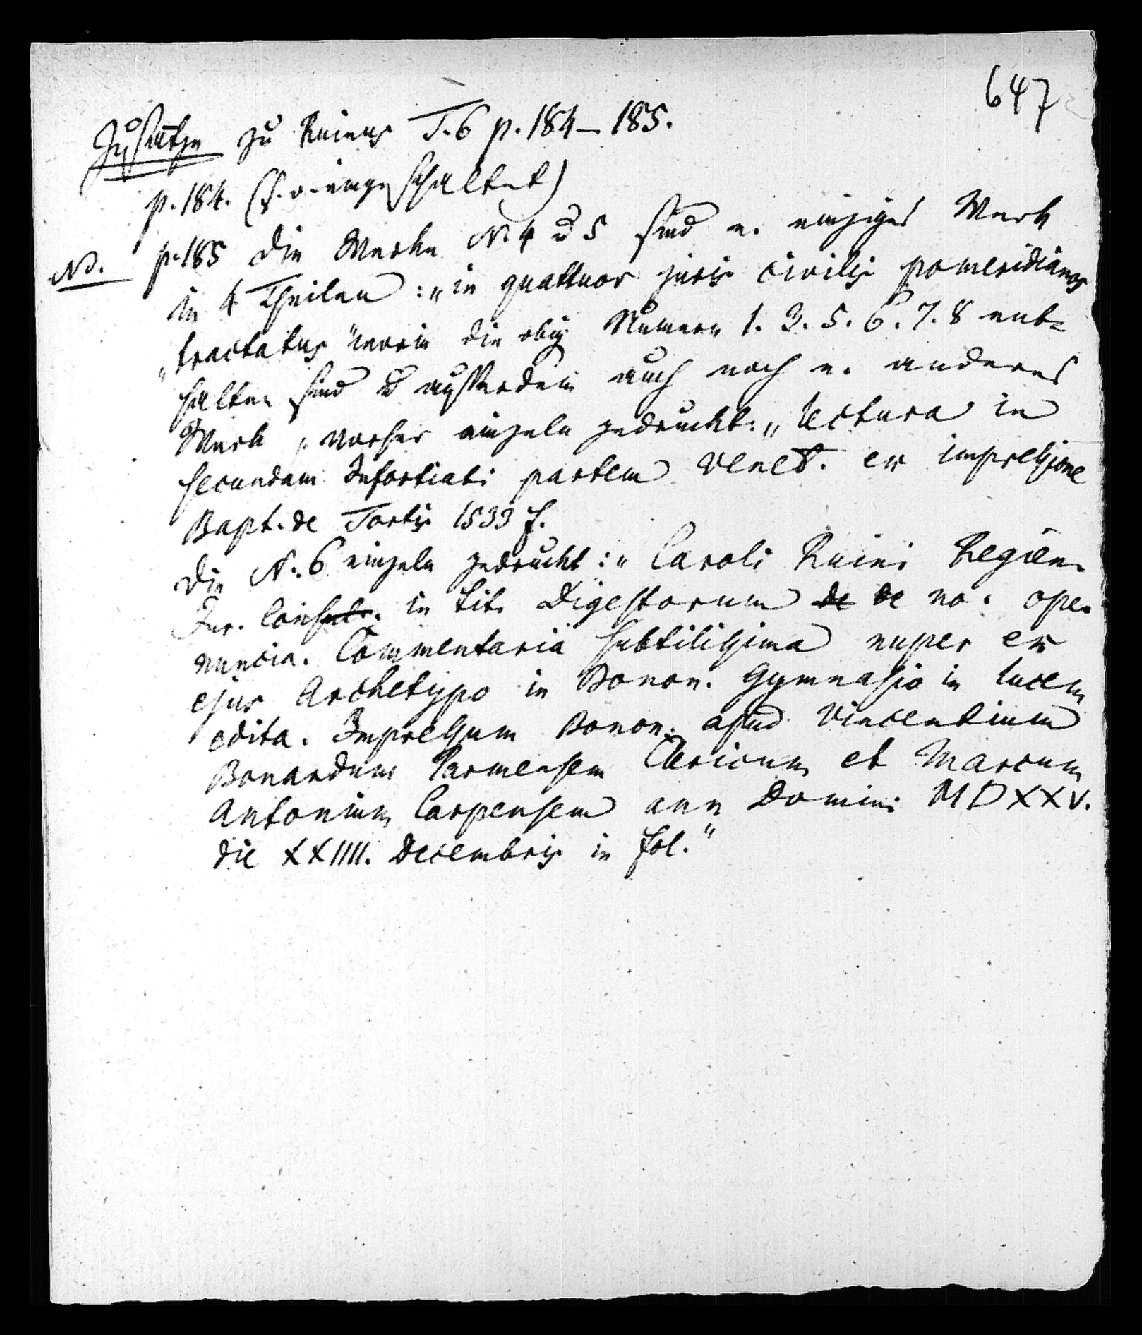 647
Zusätze zu Ruinus T. 6 p. 184–185.
p. 184. (s. o. eingeschaltet)
NB. p. 185 Die Werke N. 4 u 5 sind e. einziges Werk
in 4 Theilen: „in quattuor juris civilis pomeridianos
„tractatus" worin die obig Numern 1. 3. 5. 6. 7. 8 ent=
halten sind u außerdem auch noch e. anderes
Werk, vorher einzeln gedruckt: „Lectura in
secundam Infortiati partem Venet. ex impressione
Bapt. de Tortis 1533 f.
Die N. 6 einzeln gedruckt: „Caroli Ruini Regien.
Jur. Cons. in tit. Digestorum de no. ope.
nuncia. Commentaria subtilissima nuper ex
ejus Archetypo in Bonon. Gymnasio in lucem
edita. Impressum Bonon. apud Vincentium
Bonardum Parmensem Claricum et Marcum
Antonium Carpensem ann Domini MDXXV.
die XXIIII. Decembris in fol."